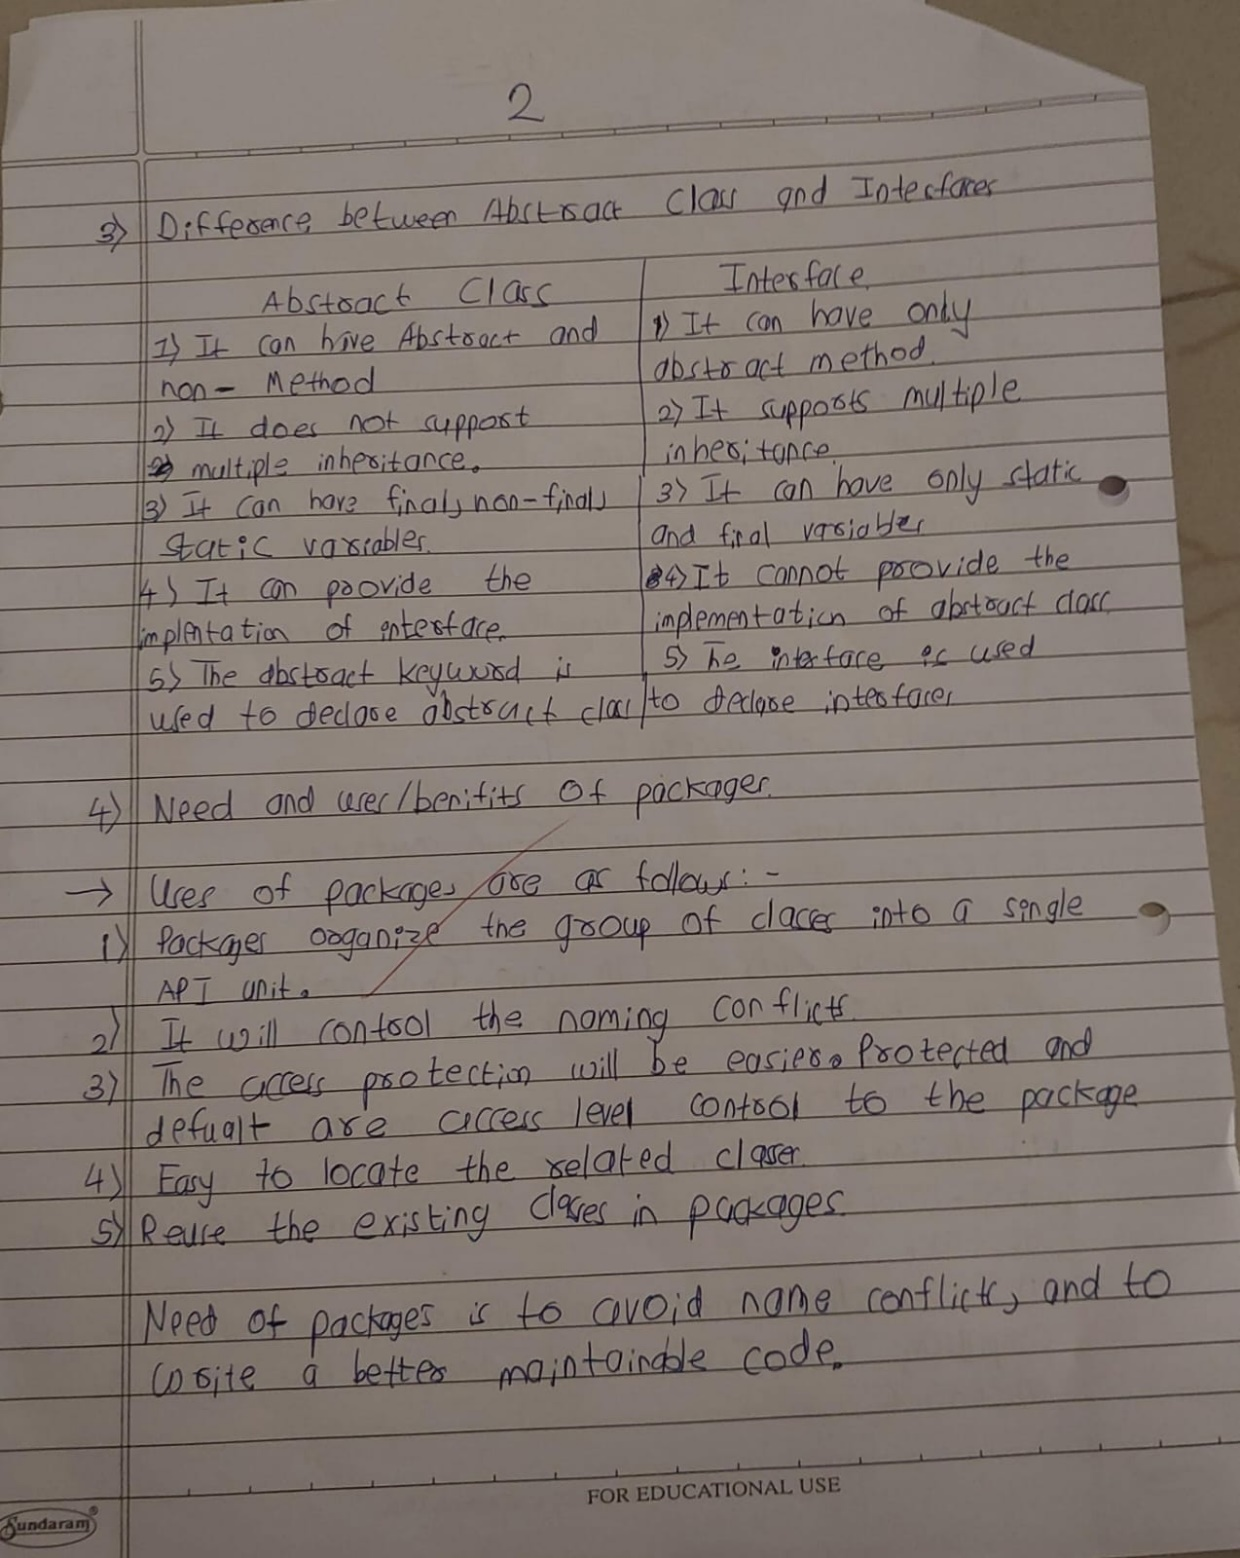 2
3) Difference between Abstract Class and Interfaces
Abstract Class | Interface
1) It can have Abstract and | 1) It can have only
non- Method | abstract method.
2) It does not support | 2) It supports multiple
multiple inheritance. | inheritance.
3) It can have final, non-final, | 3) It can have only static
static variables. | and final variables
4) It can provide the | 4) It cannot provide the
implntation of interface. | implementation of abstract class
5) The abstract keyword is | 5) The interface is used
used to declare abstract class | to declare interfaces
4) Need and uses/benifits of packages.
→ Uses of packages are as follows:-
1) Packages organize the group of classes into a single
API unit.
2) It will control the naming conflicts.
3) The access protection will be easier. Protected and
defualt are access level control to the package
4) Easy to locate the related classes.
5) Reuse the existing classes in packages.
Need of packages is to avoid name conflicts, and to
write a better maintainable code.
FOR EDUCATIONAL USE
Sundaram®